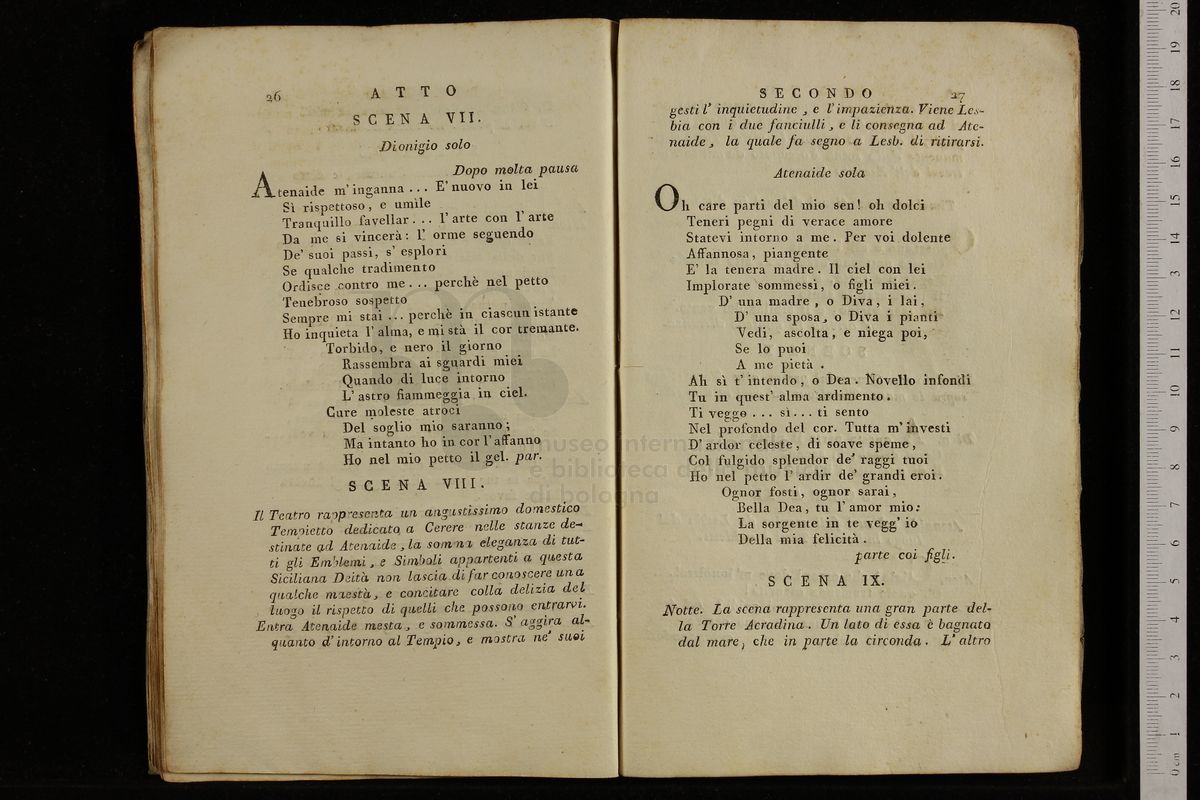 26
ATTO
SCENA VII.
Dionigio solo
Dopo molta pausa
Atenaide m'inganna ... E' nuovo in lei
Sì rispettoso, e umile
Tranquillo favellar ... l'arte con l'arte
Da me si vincerà: l' orme seguendo
De' suoi passi, s' esplori
Se qualche tradimento
Ordisce contro me ... perchè nel petto
Tenebroso sospetto
Sempre mi stai ... perchè in ciascun istante
Ho inquieta l'alma, e mi stà il cor tremante.
Torbido, e nero il giorno
Rassembra ai sguardi miei
Quando di luce intorno
L' astro fiammeggia in ciel.
Cure moleste atroci
Del soglio mio saranno;
Ma intanto ho in cor l'affanno
Ho nel mio petto il gel. par.
SCENA VIII.
Il Teatro rappresenta un angustissimo domestico
Tempietto dedicato a Cerere nelle stanze de-
stinate ad Atenaide, la somma eleganza di tut-
ti gli Emblemi, e Simboli appartenti a questa
Siciliana Deità non lascia di far conoscere una
qualche maestà, e concitare colla delizia del
luogo il rispetto di quelli che possono entrarvi.
Entra Atenaide mesta, e sommessa. S' aggira al-
quanto d'intorno al Tempio, e mostra ne' suoi
SECONDO
27
gesti l' inquietudine, e l'impazienza. Viene Les-
bia con i due fanciulli, e li consegna ad Ate-
naide, la quale fa segno a Lesb. di ritirarsi.
Atenaide sola
Oh care parti del mio sen! oh dolci
Teneri pegni di verace amore
Statevi intorno a me. Per voi dolente
Affannosa, piangente
E' la tenera madre. Il ciel con lei
Implorate sommessi, o figli miei.
D' una madre, o Diva, i lai,
D' una sposa, o Diva i pianti
Vedi, ascolta, e niega poi,
Se lo puoi
A me pietà.
Ah sì t' intendo, o Dea. Novello infondi
Tu in quest' alma ardimento.
Ti veggo ... sì ... ti sento
Nel profondo del cor. Tutta m'investi
D' ardor celeste, di soave speme,
Col fulgido splendor de' raggi tuoi
Ho nel petto l' ardir de' grandi eroi.
Ognor fosti, ognor sarai,
Bella Dea, tu l'amor mio:
La sorgente in te vegg' io
Della mia felicità.
parte coi figli.
SCENA IX.
Notte. La scena rappresenta una gran parte del-
la Torre Acradina. Un lato di essa è bagnato
dal mare, che in parte la circonda. L' altro
museo intern
e biblioteca
di bologna
0 cm 1 2 3 4 5 6 7 8 9 10 11 12 13 14 15 16 17 18 19 20